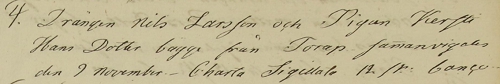 4. Drängen Nils Larsson och Pigan Kersti
Hans Dotter bägge från Torap sammanvigdes
den 9 november – Charta Sigillata 12 sk: banço